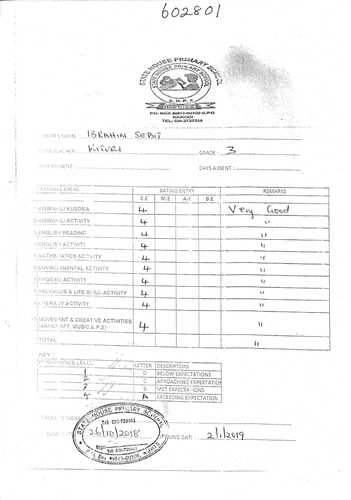 602801
STATE HOUSE PRIMARY SCHOOL
S.H.P.S
P.O. BOX 40413-00100 G.P.O
NAIROBI
TEL: 020-2727228
NAME : IBRAHIM SEBIT
TEACHER : KITURI GRADE : 3
DAYS PRESENT : DAYS ABSENT :
LEARNING AREAS RATING ENTRY REMARKS
E.E M.E A.E B.E
KISWAHILI KUSOMA 4 Very Good
KISWAHILI ACTIVITY 4 "
ENGLISH READING 4 "
ENGLISH ACTIVITY 4 "
MATHEMATICS ACTIVITY 4 "
ENVIRONMENTAL ACTIVITY 4 "
HYGIENE ACTIVITY 4 "
RELIGIOUS & LIFE SKILL ACTIVITY 4 "
LITERACY ACTIVITY 4 "
MOVEMENT & CREATIVE ACTIVITIES
MUSIC & P.E) 4 "
TOTAL "
KEY
LEVEL LETTER DESCRIPTORS
D BELOW EXPECTATIONS
C APROACHING EXPEXTATION
B MET EXPECATIONS
A EXCEEDING EXPECTATION
STATE HOUSE PRIMARY SCHOOL
26/10/2018
DATE : 2/1/2019